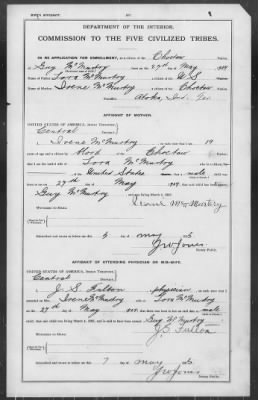 DEPARTMENT OF THE INTERIOR.
COMMISSION TO THE FIVE CIVILIZED TRIBES.
IN RE APPLICATION FOR ENROLLMENT, as a citizen of the Choctaw
Guy McMurtry born on the 27th day of May
Name of Father: Tora McMurtry a citizen of the U S
Name of Mother: Irene McMurtry a citizen of the Choctaw
Atoka, Ind. Ter.
AFFIDAVIT OF MOTHER.
UNITED STATES OF AMERICA, INDIAN TERRITORY,
Central
I, Irene McMurtry on oath state that I am 19
years of age and a citizen by blood of the Choctaw
that I am the lawful wife of Tora McMurtry who is a
of the United States that a male
on 27th day of May
Guy McMurtry
Irene McMurtry
WITNESSES TO MARK:
Subscribed and sworn to before me this 6 day of May
J W Jones
AFFIDAVIT OF ATTENDING PHYSICIAN OR MID-WIFE.
UNITED STATES OF AMERICA, INDIAN TERRITORY,
Central
I, J. S. Fulton a physician on oath state that I
attended on Irene McMurtry wife of Tora McMurtry on the
27th day of May that there was born to her on said date a male
child; that said child was living March 4, 1905, and is said to have been named Guy McMurtry
J. S. Fulton
WITNESSES TO MARK:
Subscribed and sworn to before me this 7 day of May
J W Jones